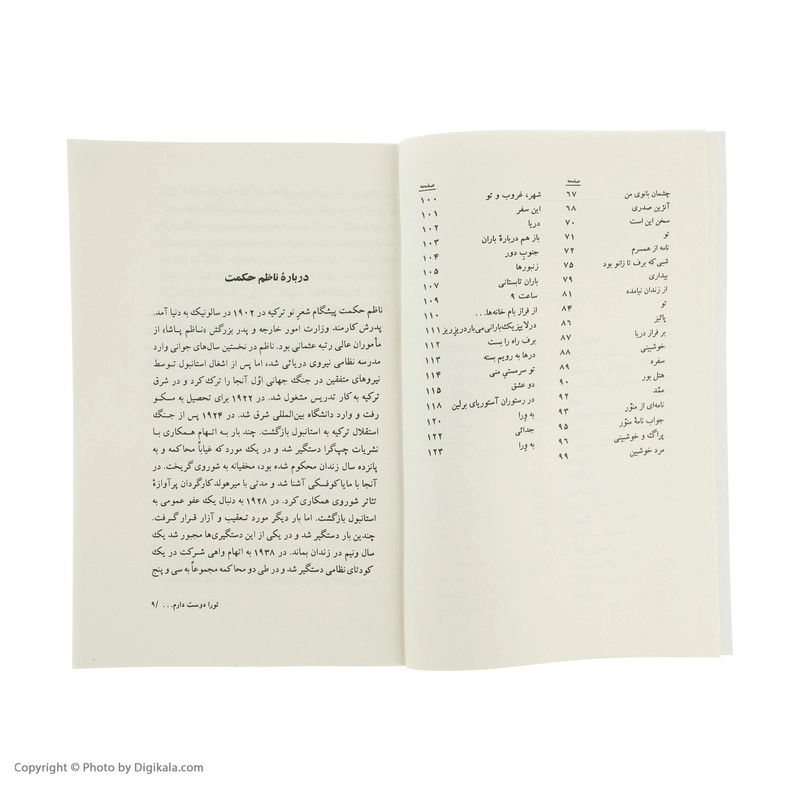 صفحه
چشمان بانوی من ۶۷
آنژین صدری ۶۸
سخن این است ۷۰
تو ۷۱
نامه از همسرم ۷۲
شبی که برف تا زانو بود ۷۵
بیداری ۷۹
از زندان نیامده ۸۱
تو ۸۴
پائیز ۸۶
بر فراز دریا ۸۷
خوشبینی ۸۸
سفره ۸۹
هتل بور ۹۰
ممَّد ۹۲
نامه‌ای از منوّر ۹۳
جواب نامهٔ منوّر ۹۵
پراگ و خوشبینی ۹۶
مرد خوشبین ۹۹
صفحه
شهر، غروب و تو ۱۰۰
این سفر ۱۰۱
دریا ۱۰۲
باز هم دربارهٔ باران ۱۰۳
جنوب دور ۱۰۴
زنبورها ۱۰۵
باران تابستانی ۱۰۷
ساعت ۹ ۱۰۹
از فراز بام خانه‌ها... ۱۱۰
در لایپزیک بارانی می‌بارد ریز ریز ۱۱۱
برف راه را بست ۱۱۲
درها به رویم بسته ۱۱۳
تو سرمستی منی ۱۱۴
دو عشق ۱۱۵
در رستوران آستوریای برلین ۱۱۸
به وِرا ۱۲۰
جدائی ۱۲۲
به وِرا ۱۲۳
دربارهٔ ناظم حکمت
ناظم حکمت پیشگام شعر نو ترکیه در ۱۹۰۲ در سالونیک به دنیا آمد.
پدرش کارمند وزارت امور خارجه و پدر بزرگش «ناظم پاشا» از
مأموران عالی رتبه عثمانی بود. ناظم در نخستین سال‌های جوانی وارد
مدرسه نظامی نیروی دریائی شد، اما پس از اشغال استانبول توسط
نیروهای متفقین در جنگ جهانی اوّل آنجا را ترک کرد و در شرق
ترکیه به کار تدریس مشغول شد. در ۱۹۲۲ برای تحصیل به مسکو
رفت و وارد دانشگاه بین‌المللی شرق شد. در ۱۹۲۴ پس از جنگ
استقلال ترکیه به استانبول بازگشت. چند بار به اتهام همکاری با
نشریات چپ‌گرا دستگیر شد و در یک مورد که غیاباً محاکمه و به
پانزده سال زندان محکوم شده بود، مخفیانه به شوروی گریخت. در
آنجا با مایاکوفسکی آشنا شد و مدتی با میرهولد کارگردان پرآوازهٔ
تئاتر شوروی همکاری کرد. در ۱۹۲۸ به دنبال یک عفو عمومی به
استانبول بازگشت. اما بار دیگر مورد تعقیب و آزار قرار گرفت.
چندین بار دستگیر شد و در یکی از این دستگیری‌ها مجبور شد یک
سال ونیم در زندان بماند. در ۱۹۳۸ به اتهام واهی شرکت در یک
کودتای نظامی دستگیر شد و در طی دو محاکمه مجموعاً به سی و پنج
تو را دوست دارم... / ۹
Copyright © Photo by Digikala.com